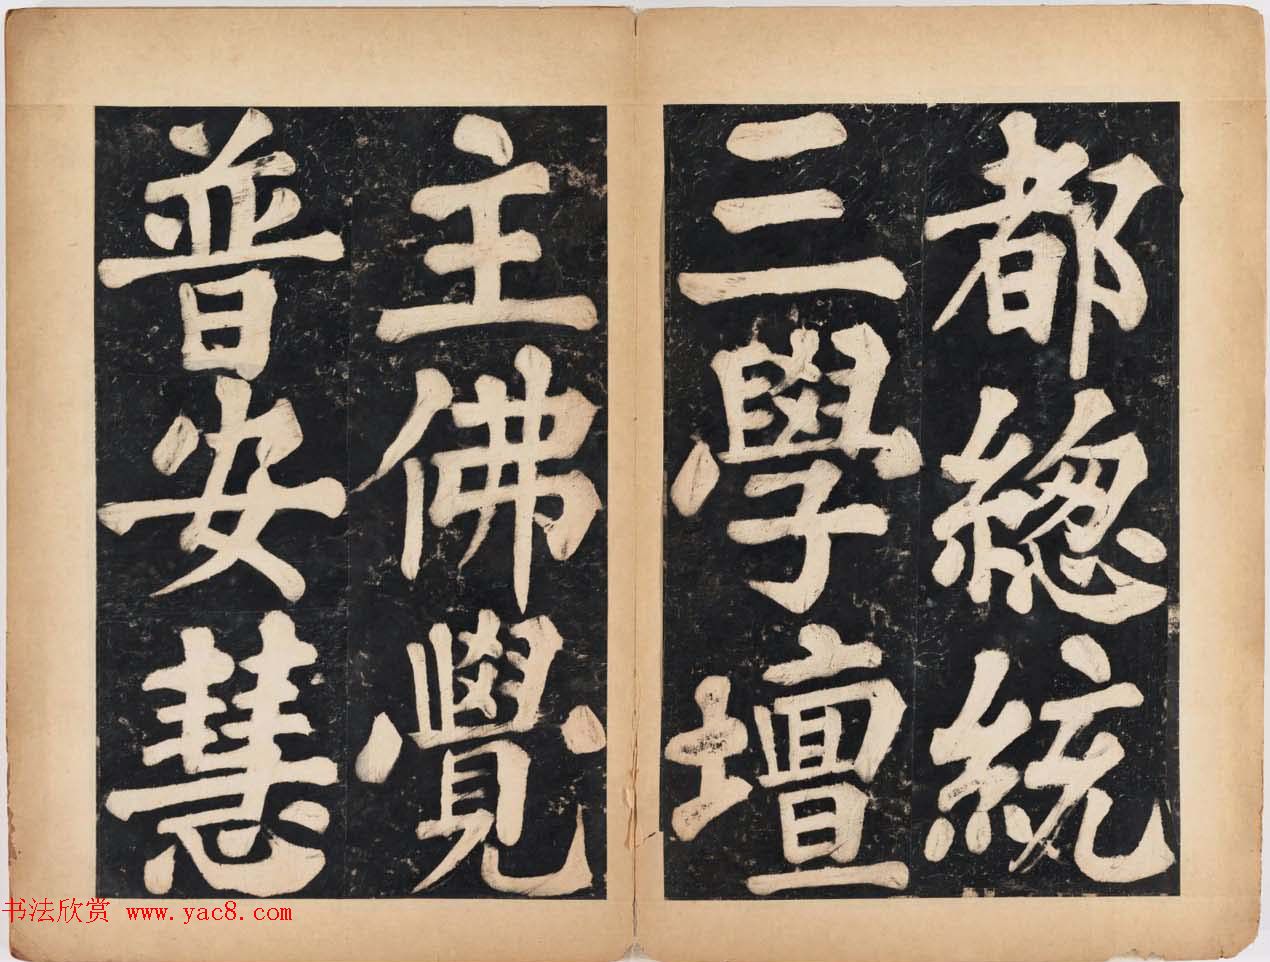 都總統
三學壇
主佛覺
普安慧
书法欣赏 www.yac8.com